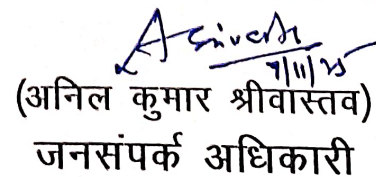 7/11/25
(अनिल कुमार श्रीवास्तव)
जनसंपर्क अधिकारी